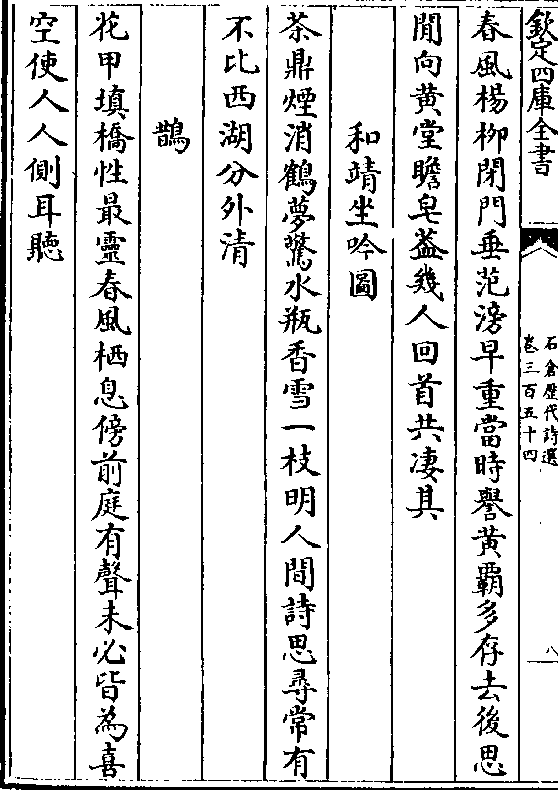 欽定四庫全書
石倉歷代詩選
卷三百五十四
八
春風楊柳閉門垂范滂早重當時譽黄覇多存去後思
閒向黄堂瞻皂葢幾人回首共凄其
和靖坐吟圖
茶鼎煙消鶴夢驚水瓶香雪一枝明人間詩思尋常有
不比西湖分外清
鵲
花甲填橋性最靈春風栖息傍前庭有聲未必皆為喜
空使人人側耳聽